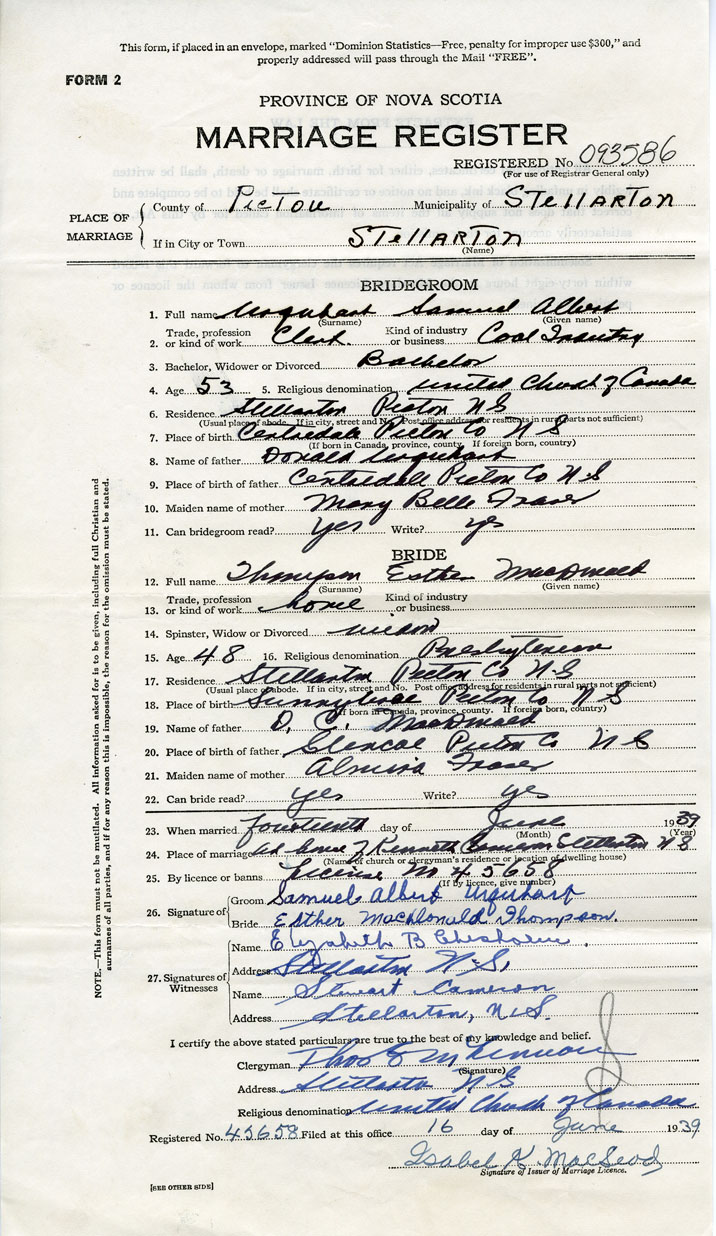 This form, if placed in an envelope, marked "Dominion Statistics—Free, penalty for improper use $300," and
properly addressed will pass through the Mail "FREE".
FORM 2
PROVINCE OF NOVA SCOTIA
MARRIAGE REGISTER
REGISTERED No. 093586
(For use of Registrar General only)
PLACE OF MARRIAGE
County of PicTou Municipality of STellARTon
If in City or Town STellARTon
(Name)
BRIDEGROOM
1. Full name Urquhart Samuel Albert
(Surname) (Given name)
2. Trade, profession or kind of work Clerk Kind of industry or business Coal Industry
3. Bachelor, Widower or Divorced Bachelor
4. Age 53 5. Religious denomination United Church of Canada
6. Residence Stellarton Pictou N S
(Usual place of abode. If in city, street and No. Post office address for residents in rural parts not sufficient)
7. Place of birth Centredale Pictou Co N S
(If born in Canada, province, county. If foreign born, country)
8. Name of father Donald Urquhart
9. Place of birth of father Centredale Pictou Co N S
10. Maiden name of mother Mary Belle Fraser
11. Can bridegroom read? yes Write? yes
BRIDE
12. Full name Thompson Esther MacDonald
(Surname) (Given name)
13. Trade, profession or kind of work home Kind of industry or business
14. Spinster, Widow or Divorced widow
15. Age 48 16. Religious denomination Presbyterian
17. Residence Stellarton Pictou Co N S
(Usual place of abode. If in city, street and No. Post office address for residents in rural parts not sufficient)
18. Place of birth Sunnybrae Pictou Co N S
(If born in Canada, province, county. If foreign born, country)
19. Name of father D. C. MacDonald
20. Place of birth of father Glencoe Pictou Co N S
21. Maiden name of mother Almira Fraser
22. Can bride read? yes Write? yes
23. When married fourteenth day of June 1939
(Month) (Year)
24. Place of marriage at home of Kenneth Cameron Stellarton N S
(Name of church or clergyman's residence or location of dwelling house)
25. By licence or banns License No 45658
(If by licence, give number)
26. Signature of
Groom Samuel Albert Urquhart
Bride Esther MacDonald Thompson.
27. Signatures of Witnesses
Name Elizabeth B Chisholm.
Address Stellarton N.S.
Name Stewart Cameron
Address Stellarton, N.S.
I certify the above stated particulars are true to the best of my knowledge and belief.
Clergyman
(Signature)
Address Stellarton N S
Religious denomination United Church of Canada
Registered No. 45658 Filed at this office 16 day of June 1939
Isabel K MacLeod
Signature of Issuer of Marriage Licence.
[SEE OTHER SIDE]
NOTE.—This form must not be mutilated. All information asked for is to be given, including full Christian and
surnames of all parties, and if for any reason this is impossible, the reason for the omission must be stated.